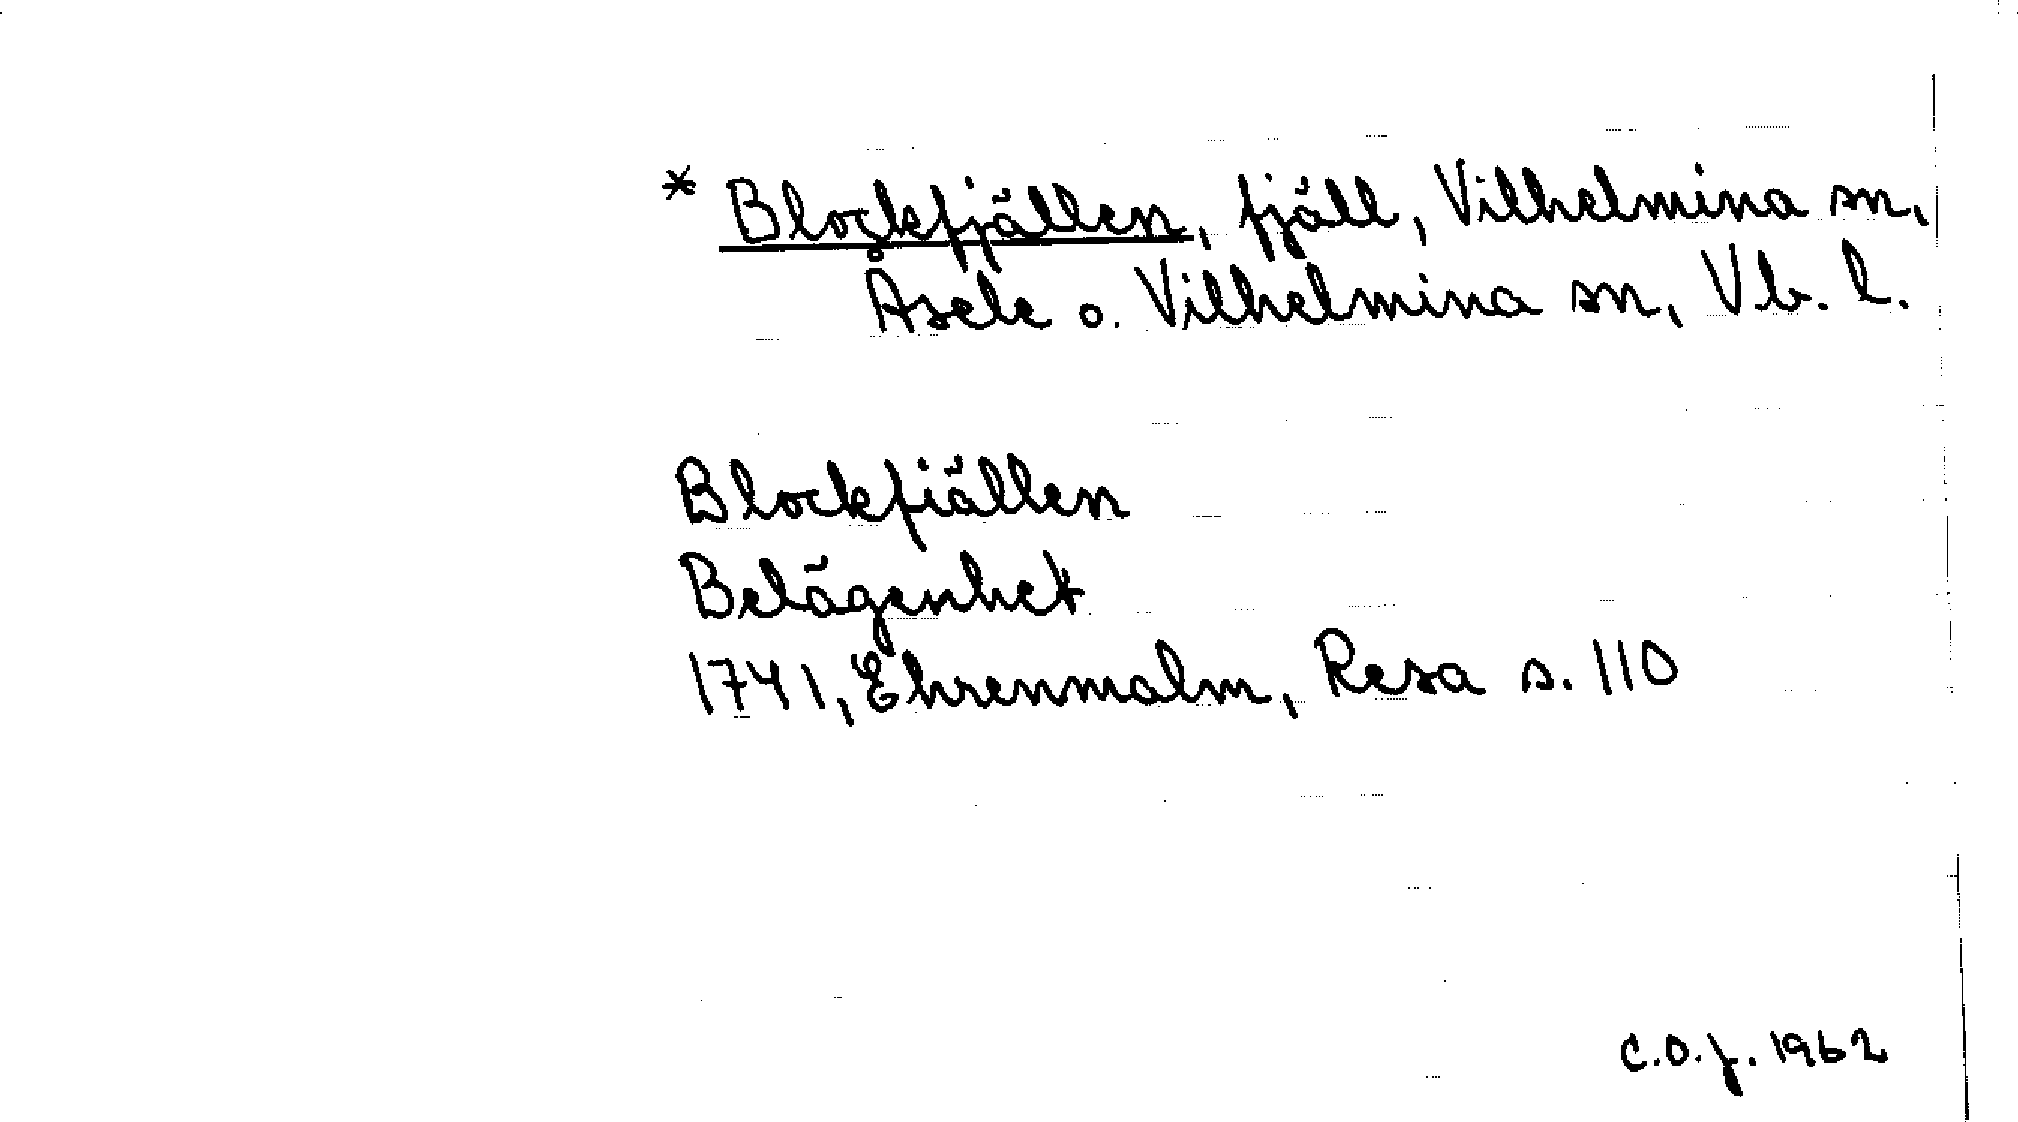 * Blockfjällen, fjäll, Vilhelmina sn,
Åsele o. Vilhelmina sn, Vb. l.
Blockfiällen
Belägenhet
1741, Ehrenmalm, Resa s. 110
C.O.J. 1962